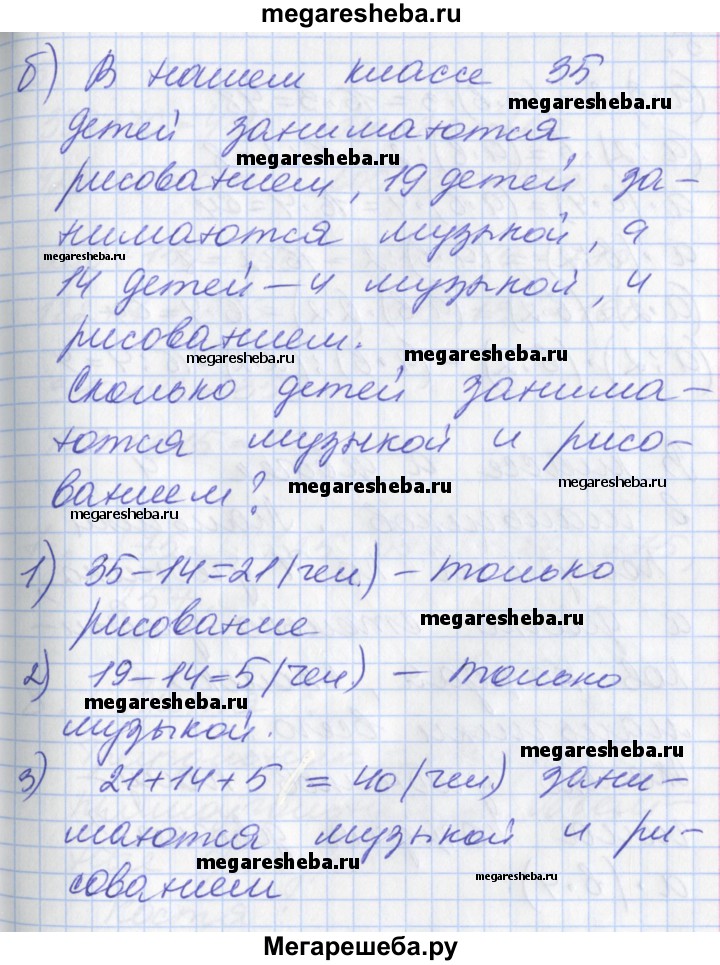 megaresheba.ru
б) В нашем классе 35
megaresheba.ru
детей занимаются
megaresheba.ru
рисованием, 19 детей за-
нимаются музыкой, а
megaresheba.ru
14 детей – и музыкой, и
рисованием.
megaresheba.ru megaresheba.ru
Сколько детей занима-
ются музыкой и рисо-
megaresheba.ru
ванием?
megaresheba.ru
megaresheba.ru
1) 35-14=21(чел.) – только
рисование
megaresheba.ru
2) 19-14=5(чел) – только
megaresheba.ru
музыкой.
megaresheba.ru
3) 21+14+5 = 40(чел.) зани-
маются музыкой и ри-
megaresheba.ru
сованием
megaresheba.ru
Мегарешеба.ру